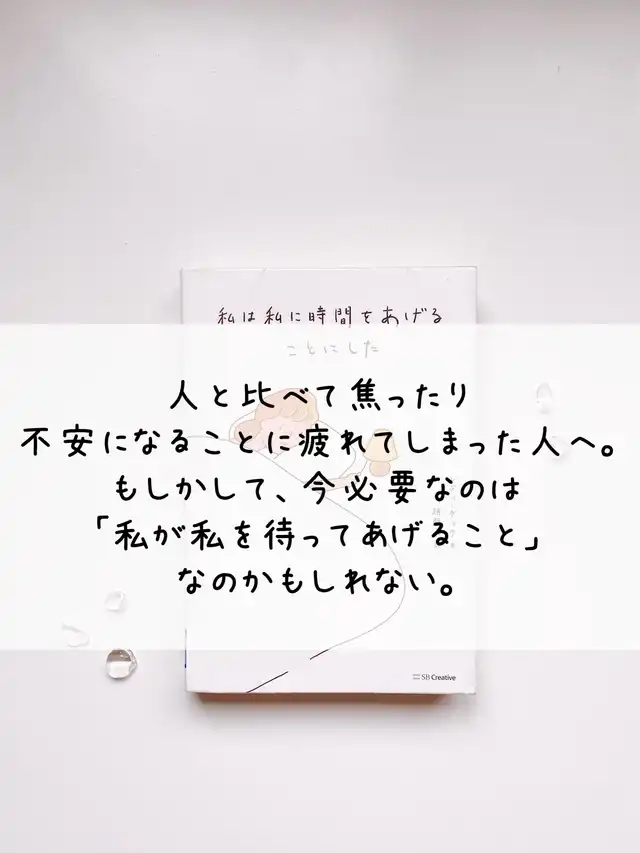 私は私に時間をあげる
ことにした
人と比べて焦ったり
不安になることに疲れてしまった人へ。
もしかして、今必要なのは
「私が私を待ってあげること」
なのかもしれない。
SB Creative